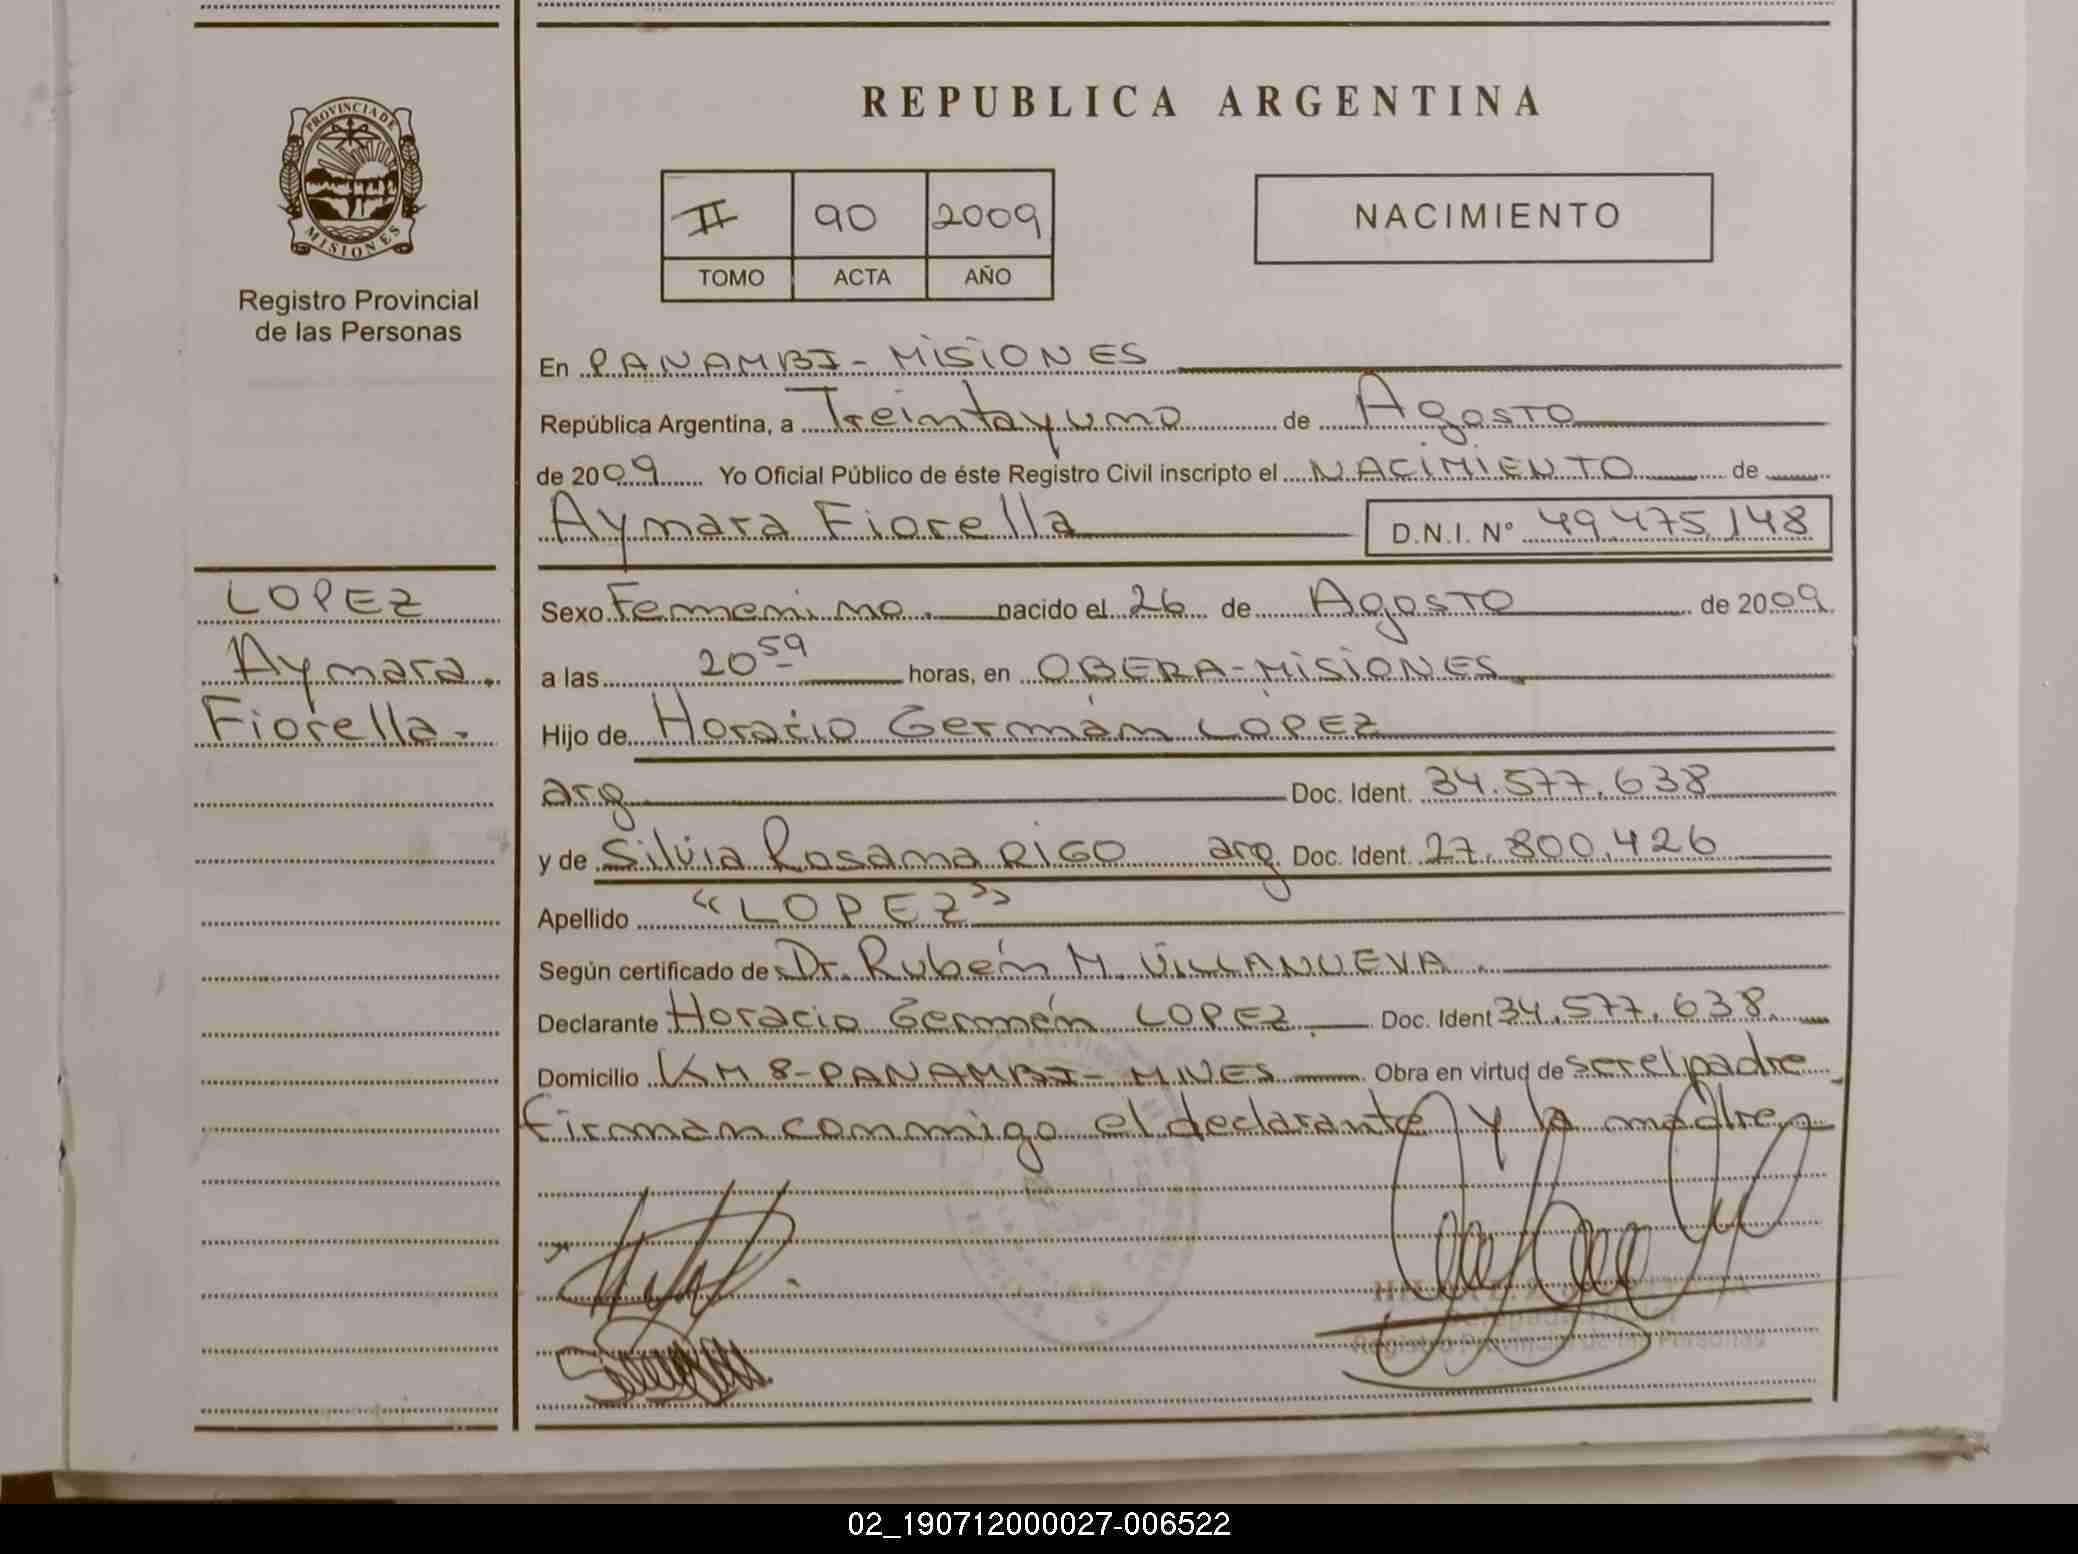 REPUBLICA ARGENTINA
PROVINCIA DE
MISIONES
Registro Provincial
de las Personas
II 90 2009
TOMO ACTA AÑO
NACIMIENTO
En PANAMBI - MISIONES
República Argentina, a Treintayuno de Agosto
de 2009 Yo Oficial Público de éste Registro Civil inscripto el NACIMIENTO de
Aymara Fiorella D.N.I. N° 49.475.148
LOPEZ
Aymara.
Fiorella.
Sexo Femenino. nacido el 26 de Agosto de 2009
a las 20 59 horas, en OBERA-MISIONES.
Hijo de Horacio Germán LOPEZ
arg Doc. Ident. 34.577.638
y de Silvia Rosana RIGO arg. Doc. Ident. 27.800.426
Apellido "LOPEZ"
Según certificado de Dr. Rubén M. VILLANUEVA.
Declarante Horacio Germán LOPEZ. Doc. Ident 34.577.638.
Domicilio KM 8-PANAMBI-MNES Obra en virtud de ser el padre
firman conmigo el declarante y la madre
Registro Provincial de las Personas
02_190712000027-006522